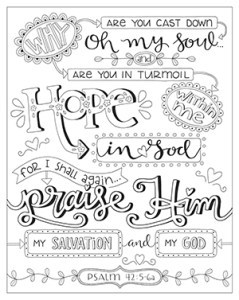 WHY ARE YOU CAST DOWN
Oh my soul...
and
ARE YOU IN TURMOIL
within me
Hope
in God
for I shall again...
praise Him
MY SALVATION and MY GOD
PSALM 42:5-6a